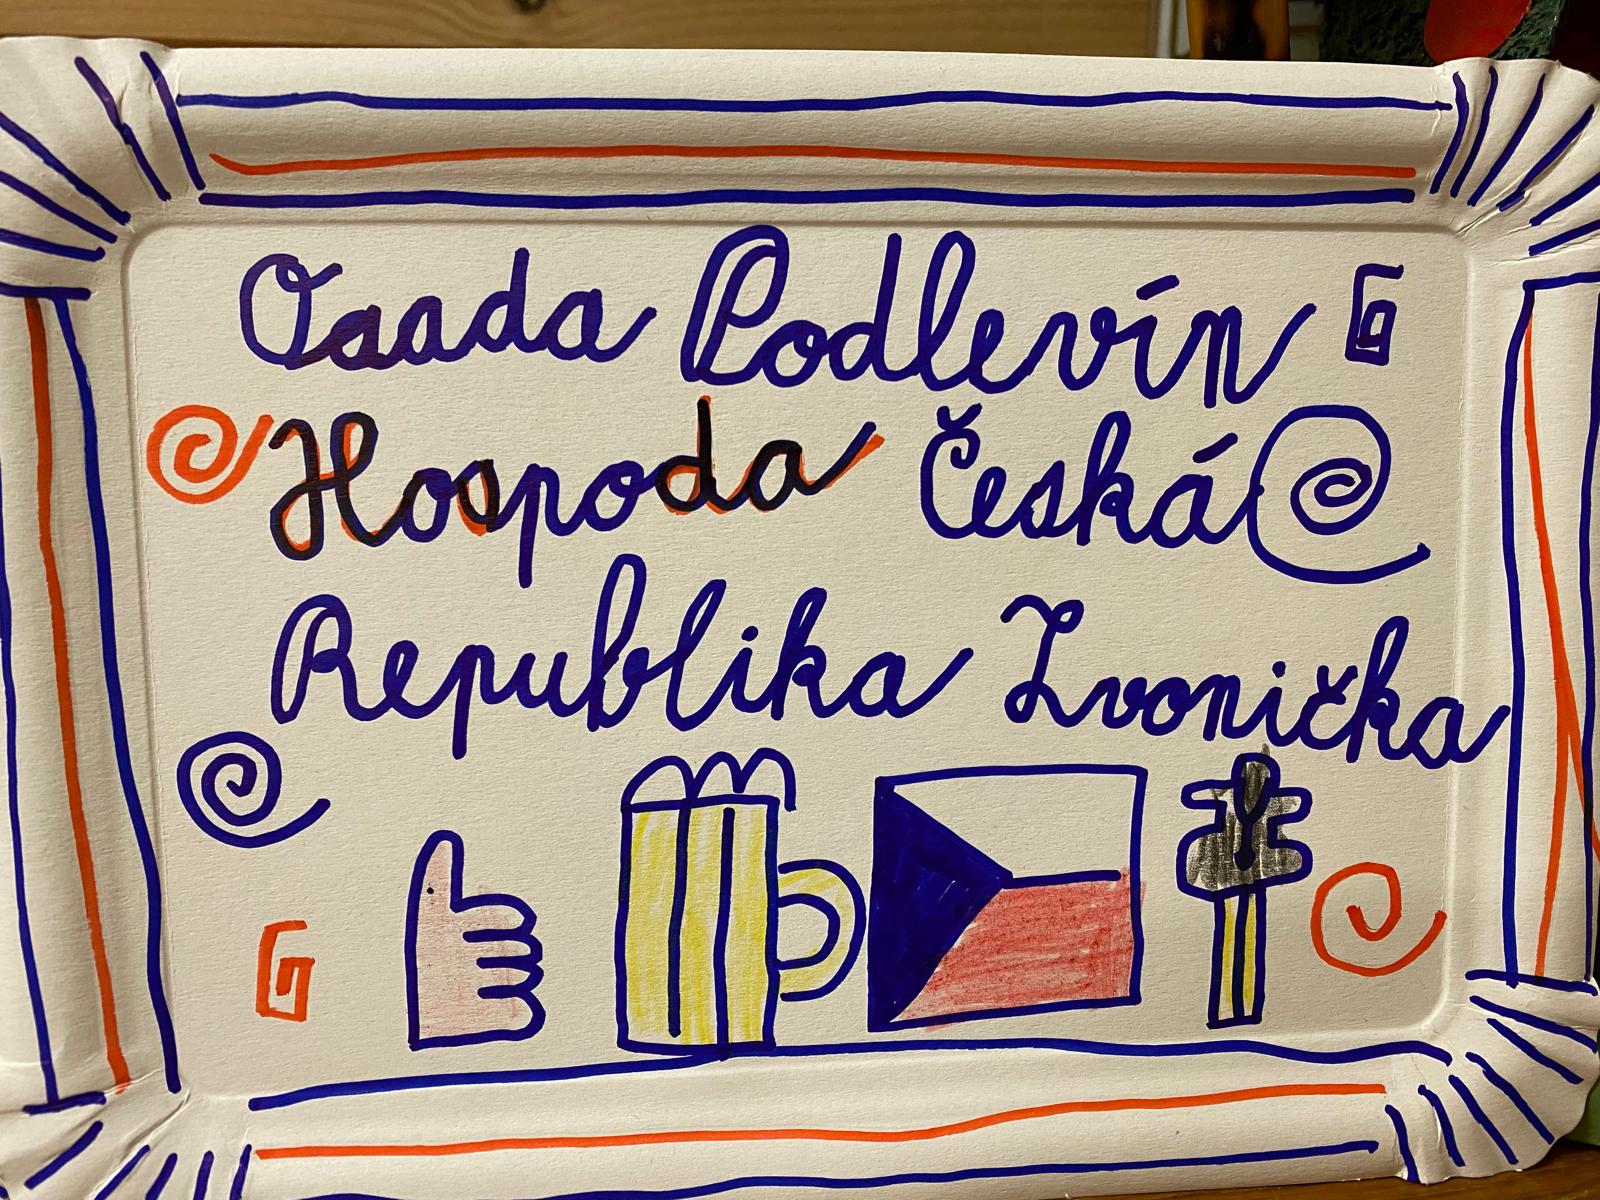 Osada Podlevín
Hospoda Česká
Republika Zvonička